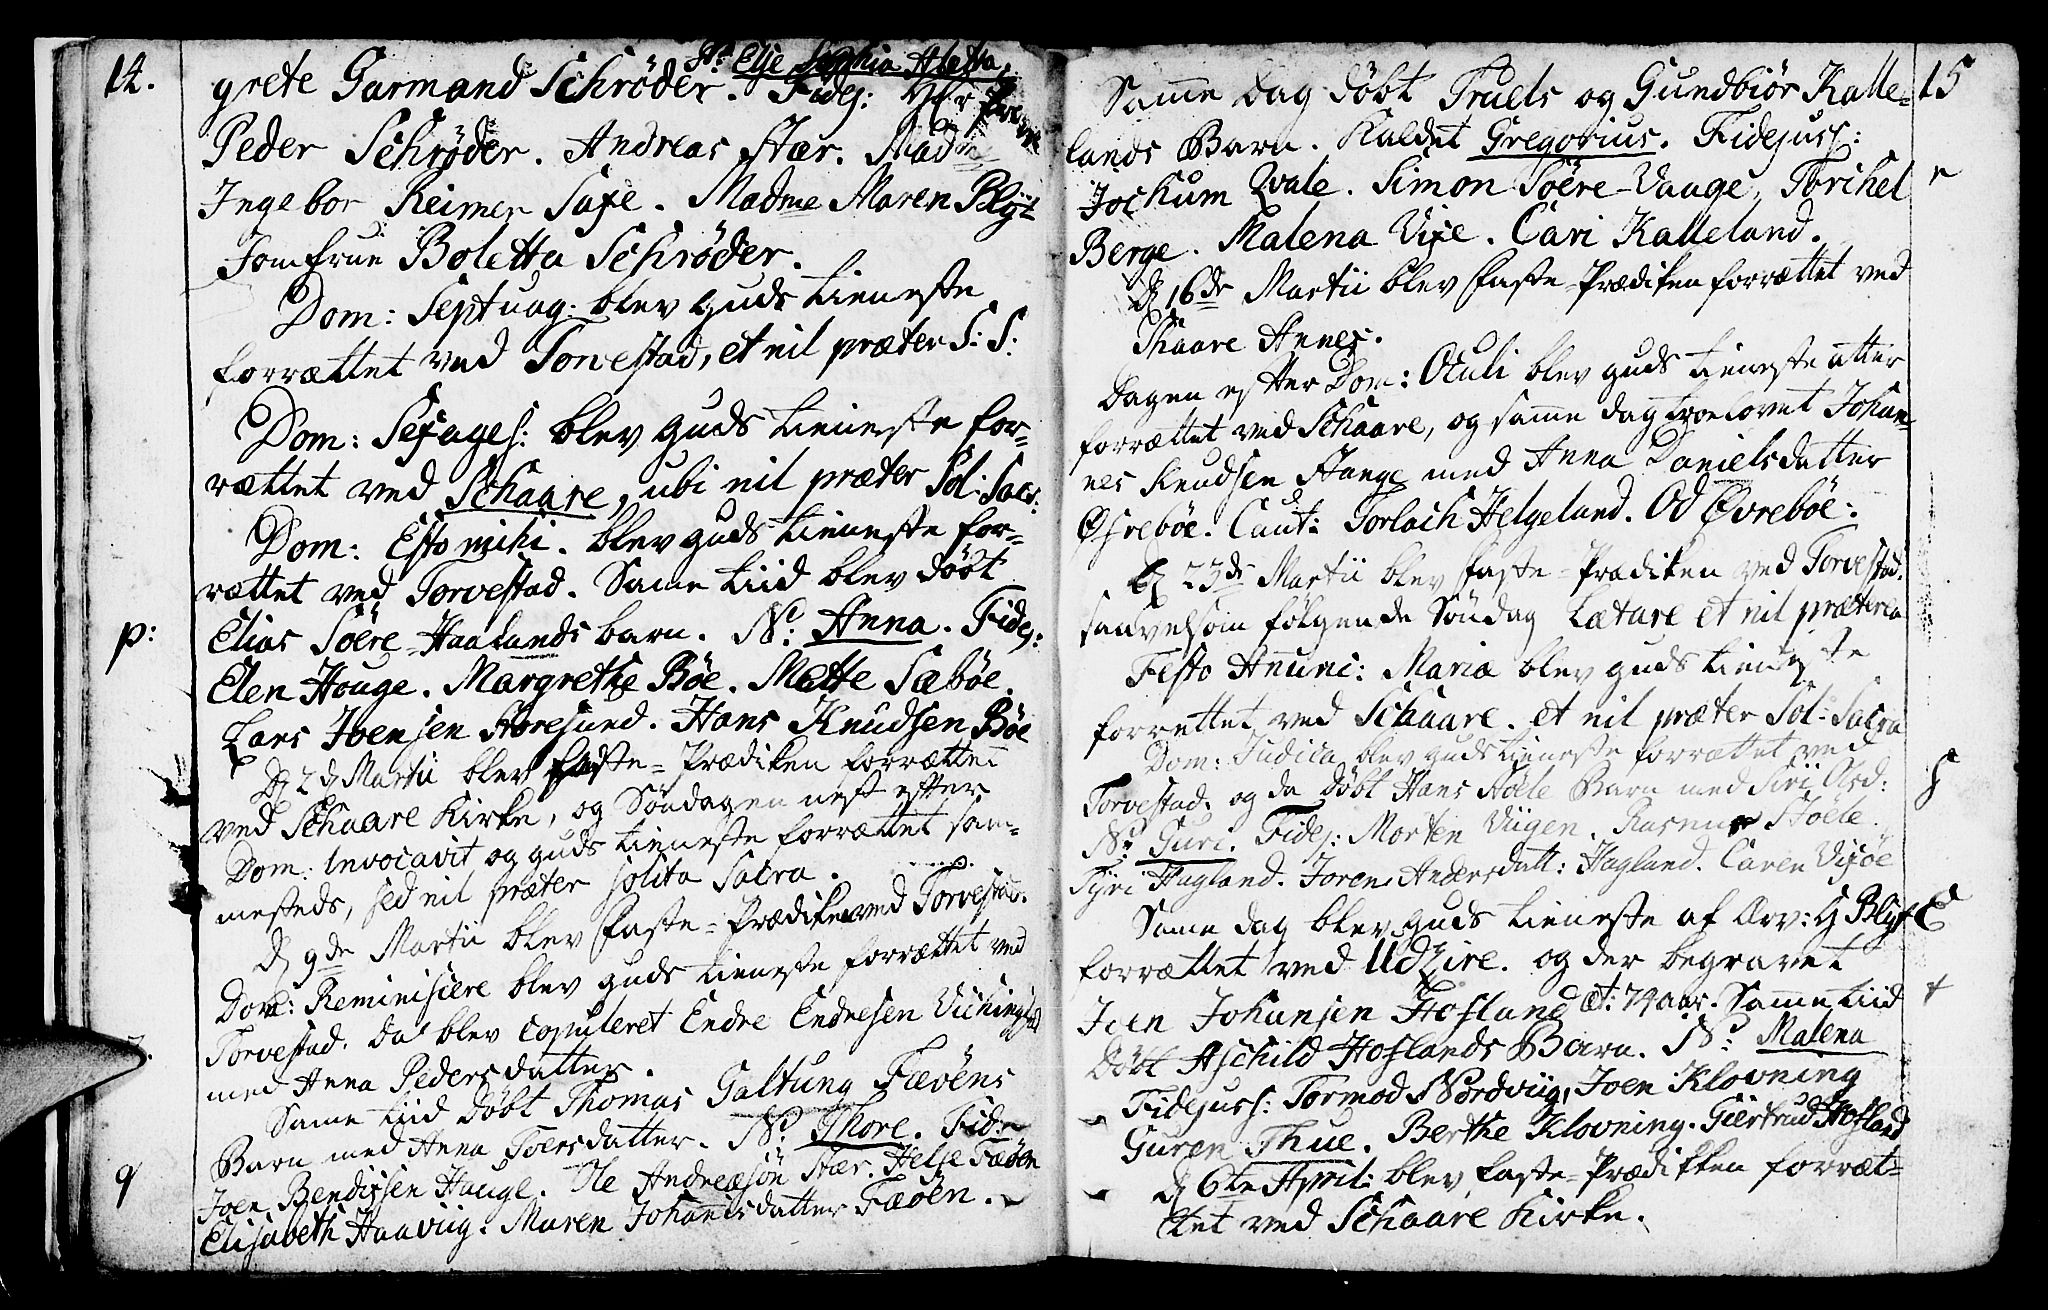 14.
No: Else Sophia Aletta,
grete Garmand Schrøder. Fidej: Hr
Peder Schrøder. Andreas Stær. Madme
Ingebor Reimer Saxe. Madme Maren Blyt
Jomfrue Boletta Schrøder.
Dom: Septuag: blev Guds tieneste
forrættet ved Torvestad, et nil præter S: S:
Dom: Sexages: blev Guds tieneste for-
rættet ved Schaare, ubi nil præter Sol: Sacr:
Dom: Esto mihi. blev Guds tieneste for-
rættet ved Torvestad. Same tiid blev døbt
p:
Elias Søere-Haalands barn. No: Anna. Fidej:
Elen Houge. Margrethe Bøe. Mette Sæbøe.
Lars Joensen Storesund. Hans Knudsen Bøe
D 2 d Martii blev faste-Prædiken forrættet
ved Schaare Kirke, og Søndagen nest efter
Dom: Invocavit og Guds tieneste forrættet sam-
mesteds, sed nil præter solita Sacra.
D 9de Martii blev faste-Prædiken ved Torvestad.
Dom: Reminiscere blev Guds tieneste forrættet ved
Torvestad. da blev copuleret Endre Endresen Vichingstad
med Anna Pedersdatter.
Same tiid døbt Thomas Galtung Fæøens
Barn med Anna Toersdatter. No: Thore. Fidej
q
Joen Bendixsen Hauge. Ole Andreæsøn Stær. Helje Fæøen
Elisabeth Haaviig. Maren Johannisdatter Fæøen.
15
Same dag døbt Truels og Gundbiør Kalle-
lands Barn. Kaldet Gregorius. Fidejuss:
r
Jochum Qvale. Simon Søere-Vaage, Torchel
Berge. Malena Vixe. Cari Kalleland.
D 16de Martii blev faste-Prædiken forrættet ved
Schaare Annex.
Dagen efter Dom: Oculi blev Guds tieneste atter
forrættet ved Schaare, og same dag troelovet Johan-
nes Knudsen Stange med Anna Danielsdatter
Øfrebøe. Caut: Torlach Helgeland. Od Øvrebøe:
D 23de Martii blev faste-Prædiken ved Torvestad.
saavelsom følgende Søndag Lætare et nil præterea
Festo Anunc: Mariæ blev Guds tieneste
forrettet ved Schaare. et nil præter Sol: Sacra
Dom: Judica blev Guds tieneste forrættet ved
s
Torvestad. og da døbt Hans Støele Barn med Siri Olsd:
No: Guri. Fidej: Morten Viigen. Rasmus Støele.
Tyri Hagland. Joren Andersdatt: Hagland. Caren Vixøe
Same dag blev Guds tieneste af Arv: H Blyt
forrættet ved Udzire. og der begravet
Joen Johansen Hofland æt: 74 aar. Same tiid
t
døbt Aschild Hoflands Barn. No: Malena
Fidejuss: Tormod Nordviig, Joen Klovning
Guren Thue. Berthe Klovning. Giertrud Hofland
D 6te April: blev faste-Prædiken forræt-
tet ved Schaare Kirke.